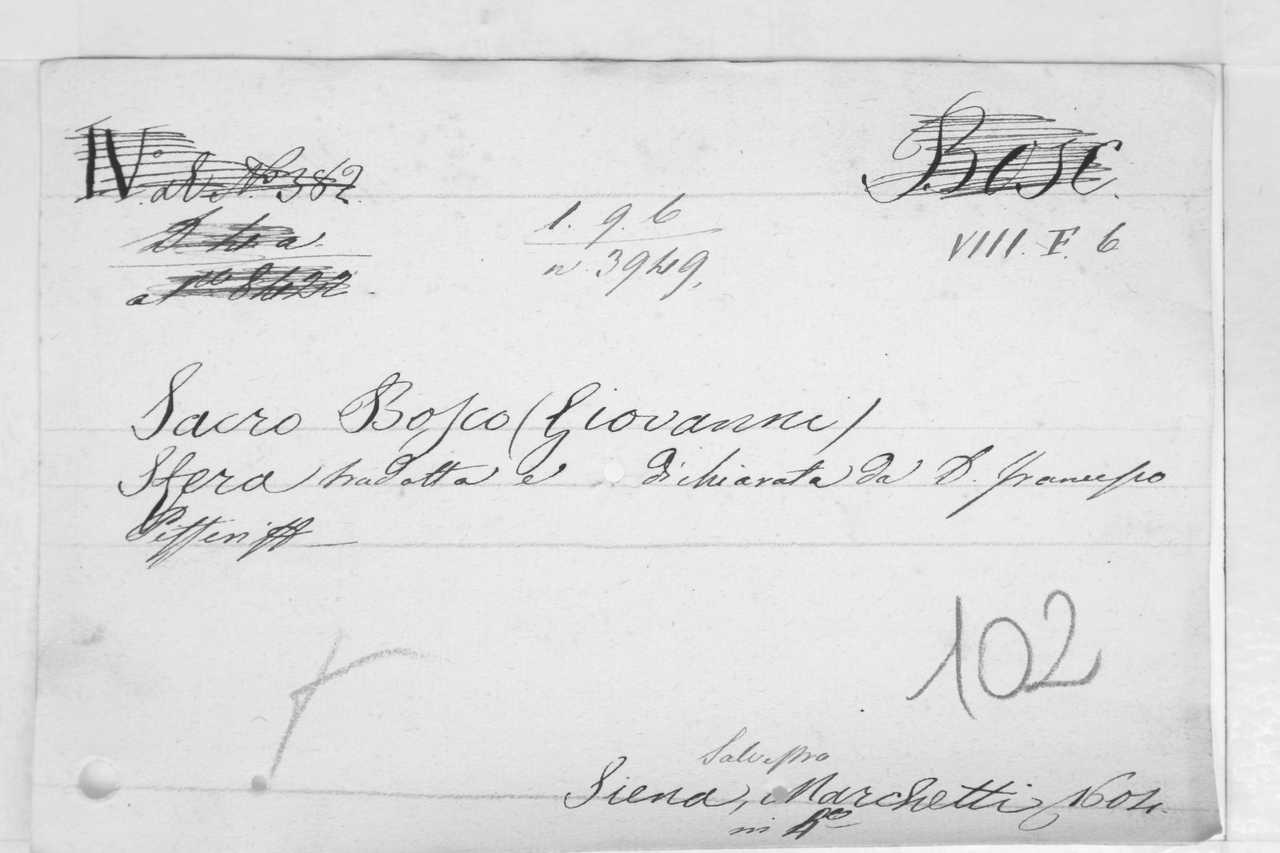 IV. al N.º 382.
Bosc.
1. 9. 6
n. 3949.
VIII. F. 6
Sacro Bosco (Giovanni)
Sfera tradotta e dichiarata da D. Francesco
Pifferi
102
Salvestro
Siena, Marchetti, 1604.
in 4º